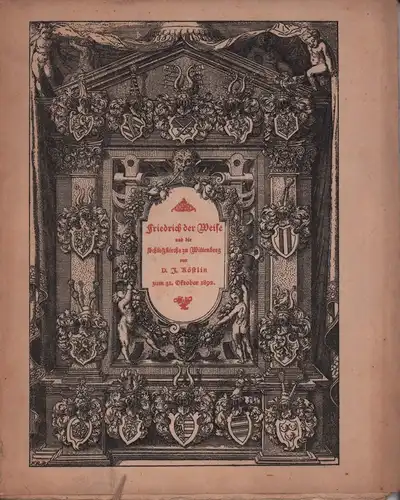 Friedrich der Weise
und die
Schloßkirche zu Wittenberg
von
D. J. Köstlin
zum 31. Oktober 1892.